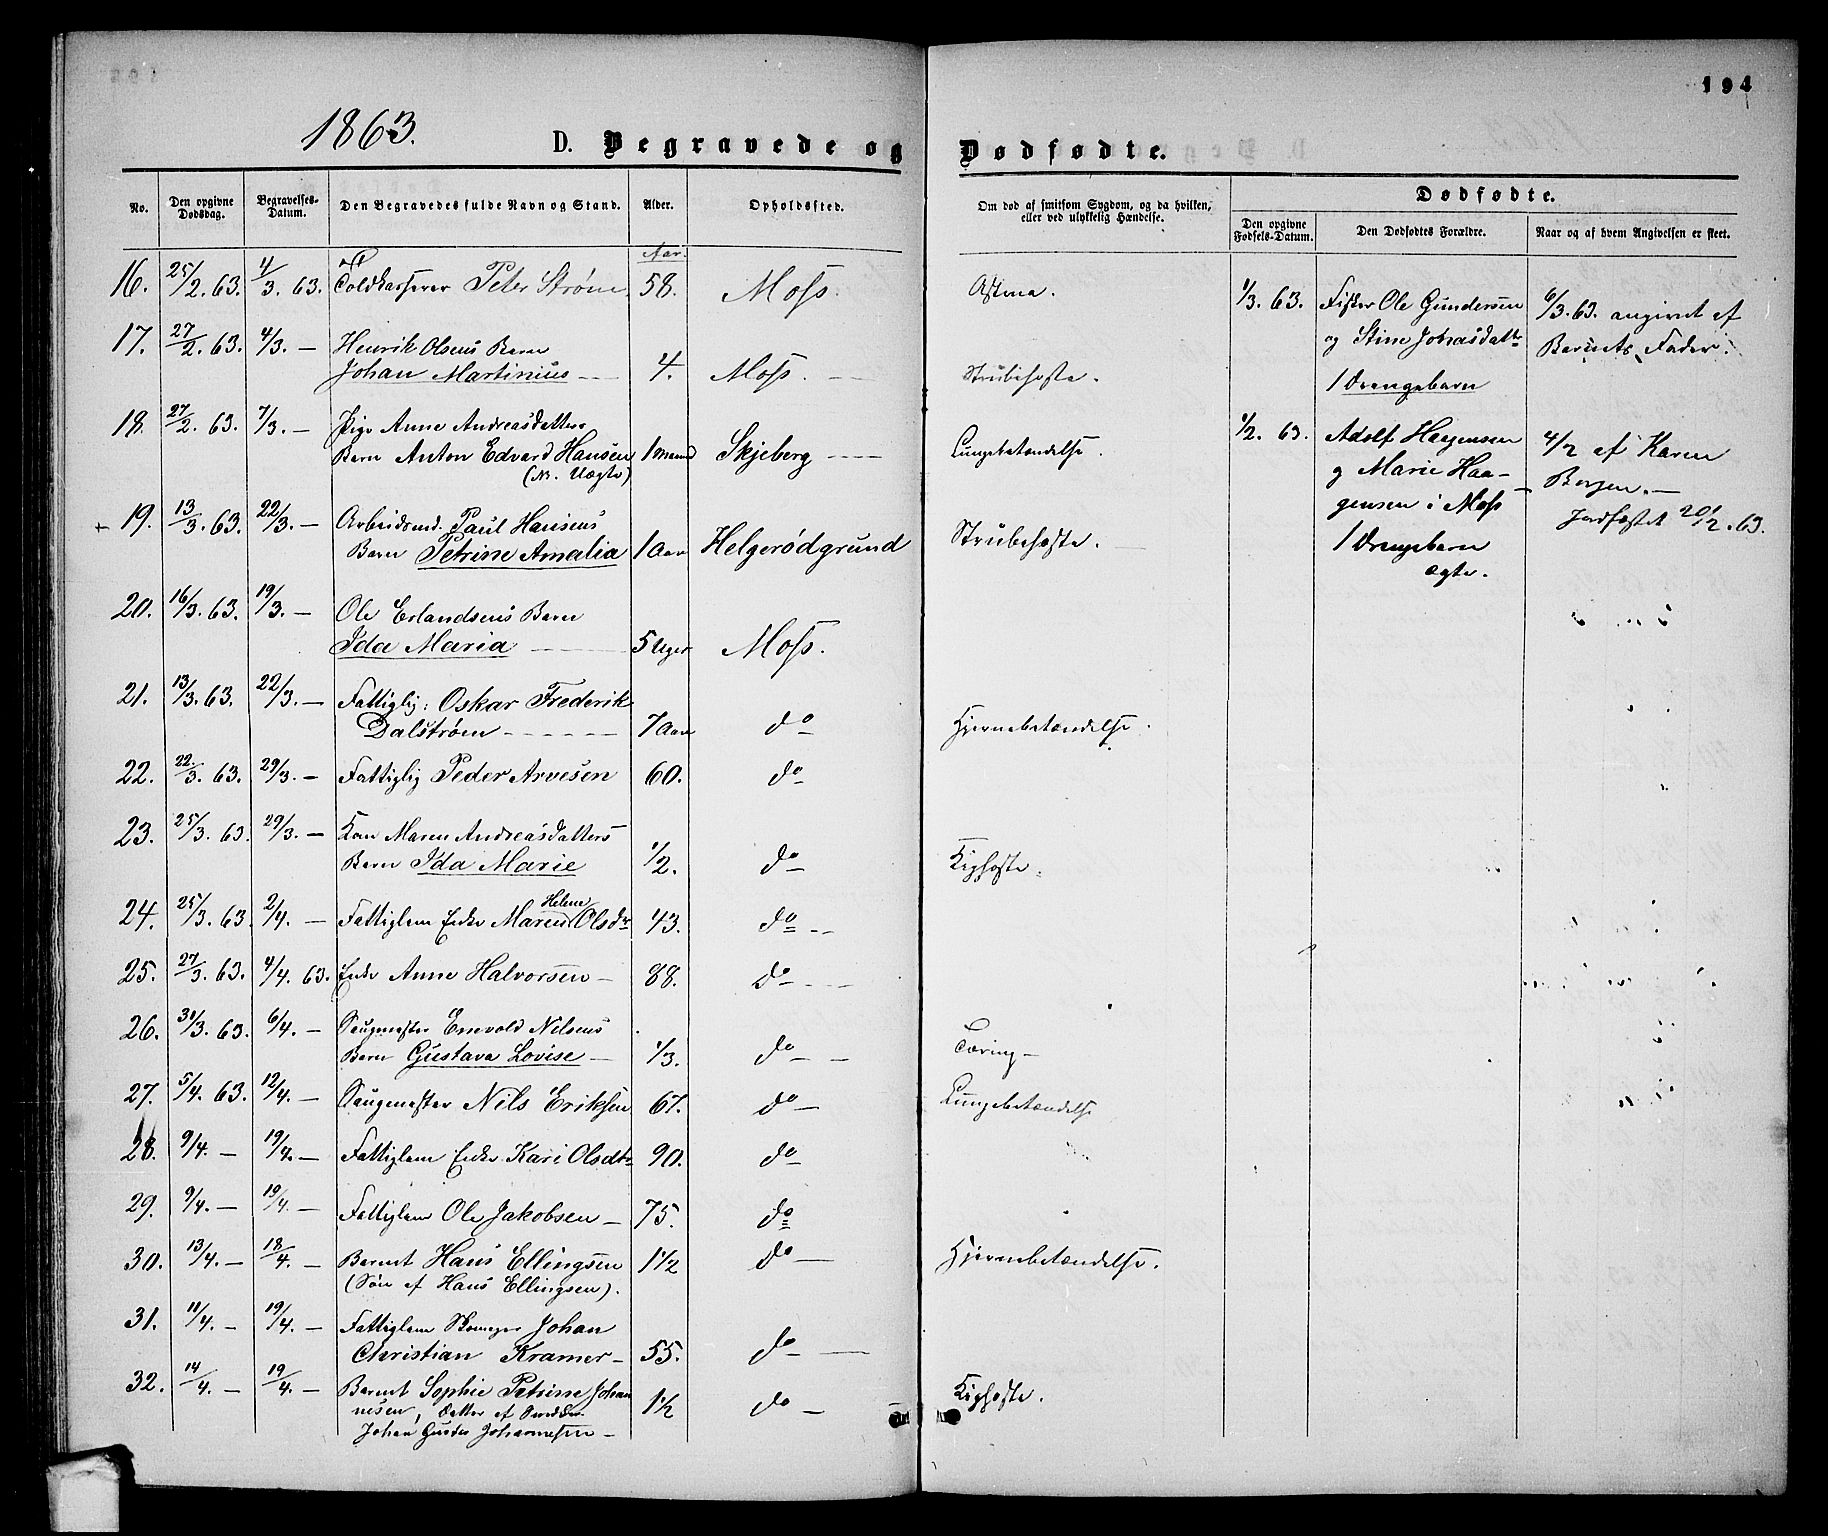 194
1863. D. Begravede og Dødfødte.
No. Den opgivne Dødsdag. Begravelses-Datum. Den Begravedes fulde Navn og Stand. Alder. Opholdssted. Om død af smitsom Sygdom, og da hvilken, eller ved ulykkelig Hændelse.
Dødfødte.
Den opgivne Fødsels-Datum. Den Dødfødtes Forældre. Naar og af hvem Angivelsen er skeet.
Aar.
16. 25/2. 63. 4/3. 63. Toldkasserer Peter Strøm 58. Moss. Astma.
17. 27/2. 63. 4/3. — Henrik Olsens Barn
Johan Martinius 4. Moss. Strubehoste.
18. 27/2. 63. 7/3. — Pige Anne Andreasdatters
Barn Anton Edvard Hansen 1 Maaned Skjeberg Lungebetændelse.
(N. Uægte)
19. 13/3. 63. 22/3. — Arbeidsmd. Paul Hansens
Barn Petrine Amalia 1 Aar Helgerødgrund Strubehoste.
20. 16/3. 63. 19/3. — Ole Erlandsens Barn
Ida Maria 5 Uger Moss.
21. 13/3. 63. 22/3. — Fattiglig: Oskar Frederik
Dalstrøm 7 Aar do Hjernebetændelse.
22. 22/3. 63. 29/3. — Fattiglig Peder Arvesen 60. do
23. 25/3. 63. 29/3. — Kone Maren Andreasdatters
Barn Ida Marie 1/2. do Kighoste.
24. 25/3. 63. 2/4. — Fattiglem Enke Maren Helene Olsdr 43. do
25. 27/3. 63. 4/4. 63. Enke Anne Halvorsen — 88. do
26. 31/3. 63. 6/4. — Saugmester Enevold Nilsens
Barn Gustava Lovise — 1/3. do Tæring —
27. 5/4. 63. 12/4. — Saugmester Nils Eriksen 67. do Lungebetændelse
28. 9/4. — 19/4. — Fattiglem Enke Kari Olsdtr 90. do
29. 9/4. — 19/4. — Fattiglem Ole Jakobsen — 75. do
30. 13/4. — 18/4. — Barnet Hans Ellingsen 1 1/2 do Hjernebetændelse.
(Søn af Hans Ellingsen).
31. 11/4. — 19/4. — Fattiglem Skomager Johan
Christian Kramer — 55. do
32. 14/4. — 19/4. — Barnet Sophie Petrine Johan
nesen, Datter af
Johan Johannesen — 1 1/2 do Kighoste.
1/3. 63. Fisker Ole Gundersen 6/3. 63. angivet af
og Stine Johasdattr Barnets Fader.
1 Drengebarn
1/2. 63. Adolf Haagensen 4/2 af Karen
og Marie Haa- Borgen. —
gensen i Moss Jordfæstet 20/2. 63.
1 Drengebarn
ægte.